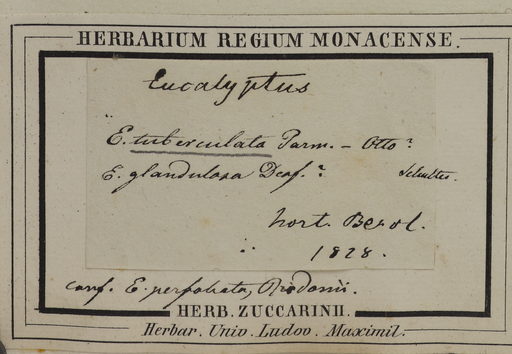 HERBARIUM REGIUM MONACENSE.
Eucalyptus
E. tuberculata Parm. - Otto?
E. glandulosa Desf.? Schultes.
hort. Berol.
1828.
conf. E. perfoliata, Risdonii.
HERB. ZUCCARINII.
Herbar. Univ. Ludov. Maximil.